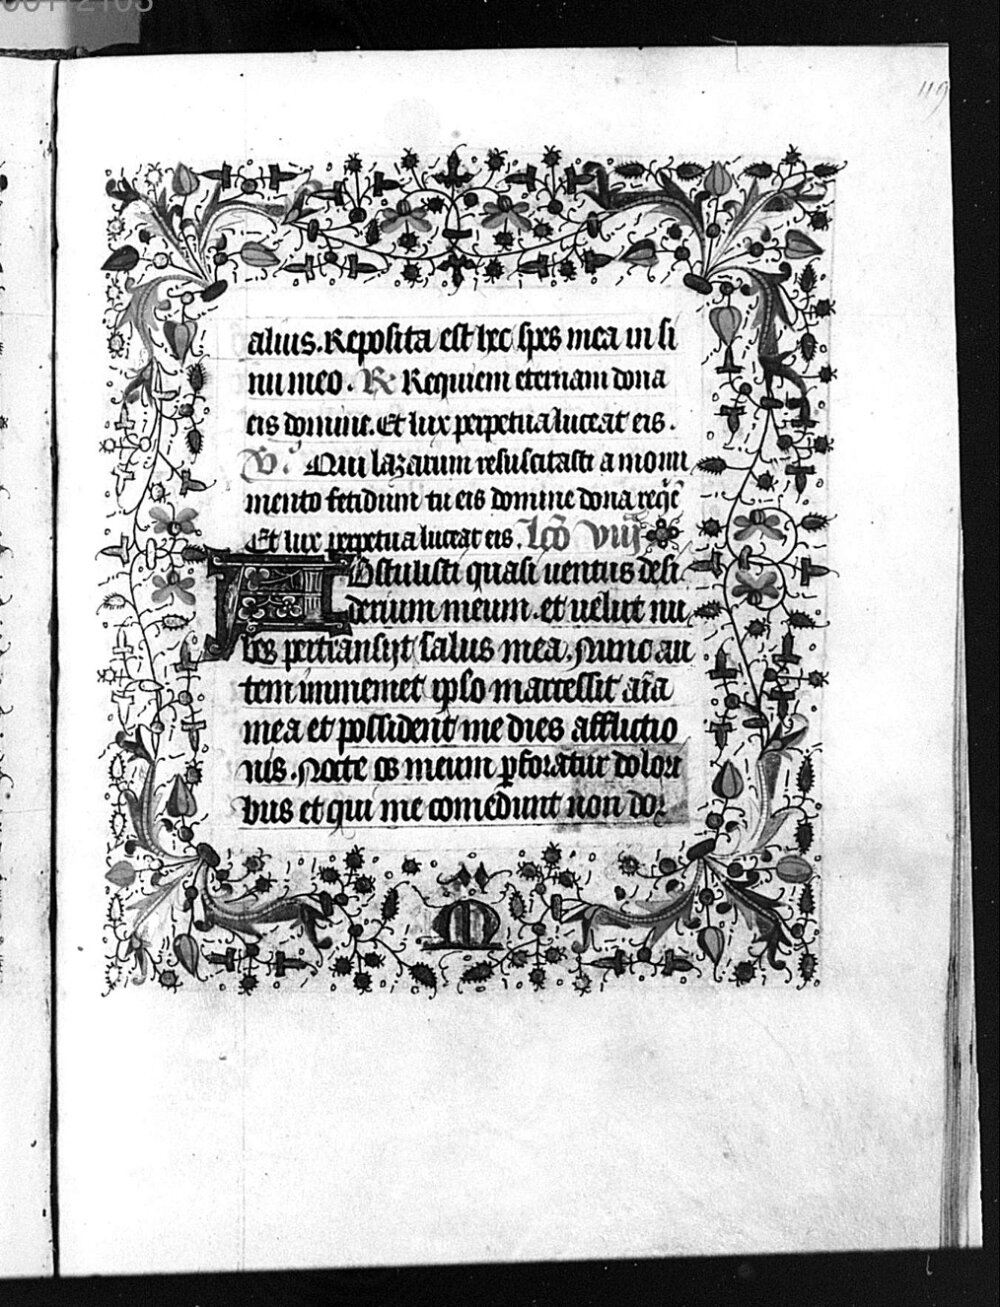 00112103
119
aluis. Reposita est hec spes mea in si
nu meo. R. Requiem eternam dona
eis domine. Et lux perpetua luceat eis.
V. Qui lazarum resuscitasti a monu
mento fetidum tu eis domine dona reqē
Et lux perpetua luceat eis. Lcō viij
Abstulisti quasi uentus desi
derium meum. et uelut nu
bes pertransijt salus mea. Nunc au
tem inmemet ipso marcessit aīa
mea et possident me dies afflictio
nis. Nocte os meum pforatur dolori
bus et qui me comedunt non dor